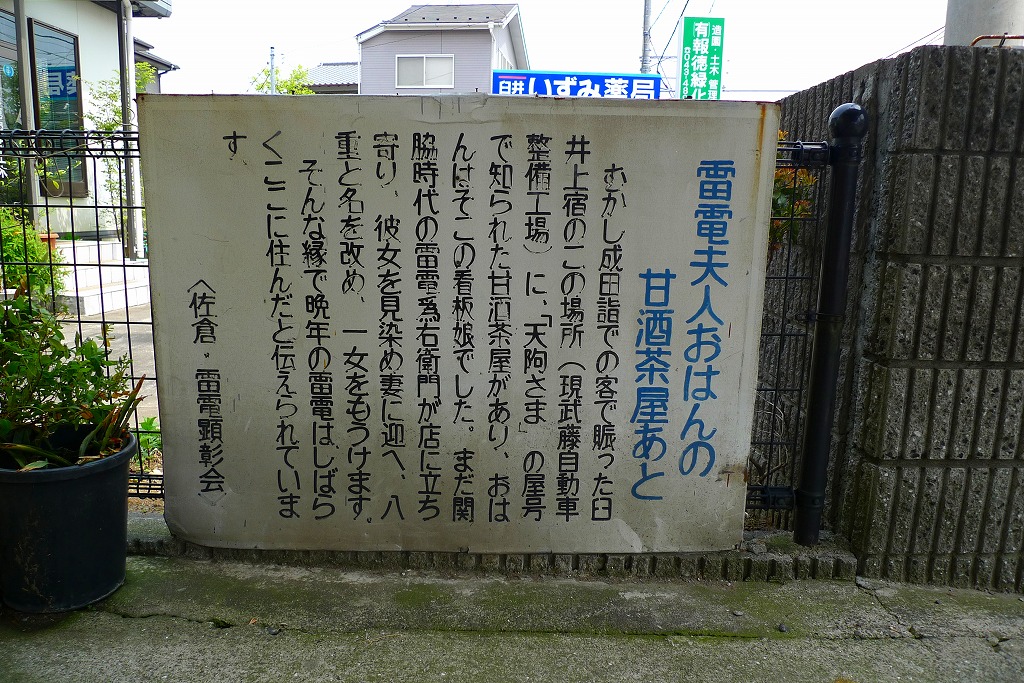 雷電夫人おはんの
甘酒茶屋あと
むかし成田詣での客で賑った臼
井上宿のこの場所（現武藤自動車
整備工場）に、「天狗さま」の屋号
で知られた甘酒茶屋があり、おは
んはそこの看板娘でした。まだ関
脇時代の雷電為右衛門が店に立ち
寄り、彼女を見染め妻に迎へ、八
重と名を改め、一女をもうけます。
そんな縁で晩年の雷電はしばら
くここに住んだと伝えられていま
す
〈佐倉・雷電顕彰会
臼井いずみ薬局
造園・土木・管理
有報徳緑化
薬局